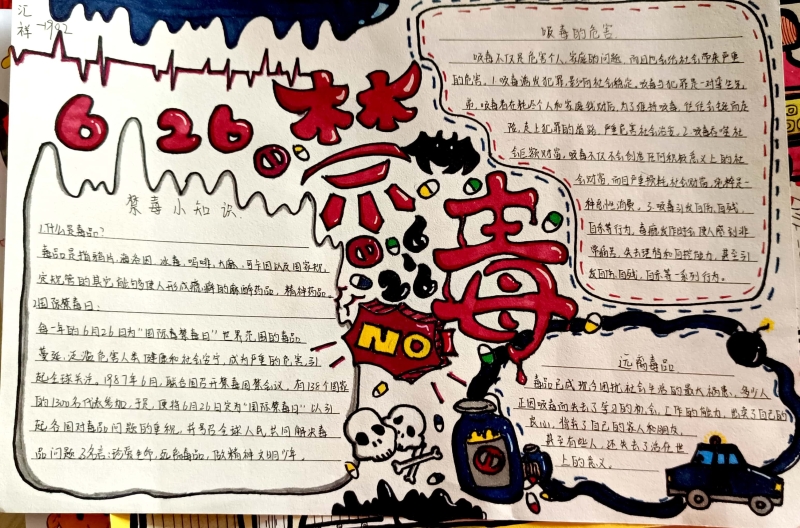 汇
祥-1902
6 26
禁
毒
6
26
NO
禁毒小知识
1.什么是毒品?
毒品是指鸦片,海洛因、冰毒、吗啡,大麻,可卡因以及国家规
定规管的其它能够使人形成瘾癖的麻醉药品,精神药品。
2.国际禁毒日:
每一年的6月26日为"国际禁毒日"世界范围的毒品
蔓延,泛滥危害人类健康和社会安宁,成为严重的危害,引
起全球关注。1987年6月,联合国召开禁毒国禁会议,有138个国家
的1300名代表参加,于是,便将6月26日定为"国际禁毒日"以引
起各国对毒品问题的重视,并号召全球人民共同解决毒
品问题 3名言:珍爱生命,远离毒品,做精神文明少年。
吸毒的危害
吸毒不仅是危害个人、家庭的问题,而且也会给社会带来严重
的危害,1.吸毒诱发犯罪,影响社会稳定。吸毒与犯罪是一对孪生兄
弟,吸毒者在耗尽个人和家庭钱财后,为了维持吸毒,
走上犯罪的道路,严重危害社会治安,2.吸毒吞噬社
会巨额财富。吸毒不仅不会创造任何积极意义上的社
会财富,而且严重损耗社会财富,
3.吸毒引发自伤,自残,
自杀等行为,毒瘾发作时会使人感到非
常痛苦,失去理智和自控能力,甚至引
发自伤,自残,自杀等一系列行为。
远离毒品
毒品已成现今困扰社会生活的最大祸患,多少人
正因吸毒而失去了学习的机会,工作的能力,出卖了自己的
良心,背弃了自己的家人和朋友,
甚至有些人,还失去了活在世
上的意义。